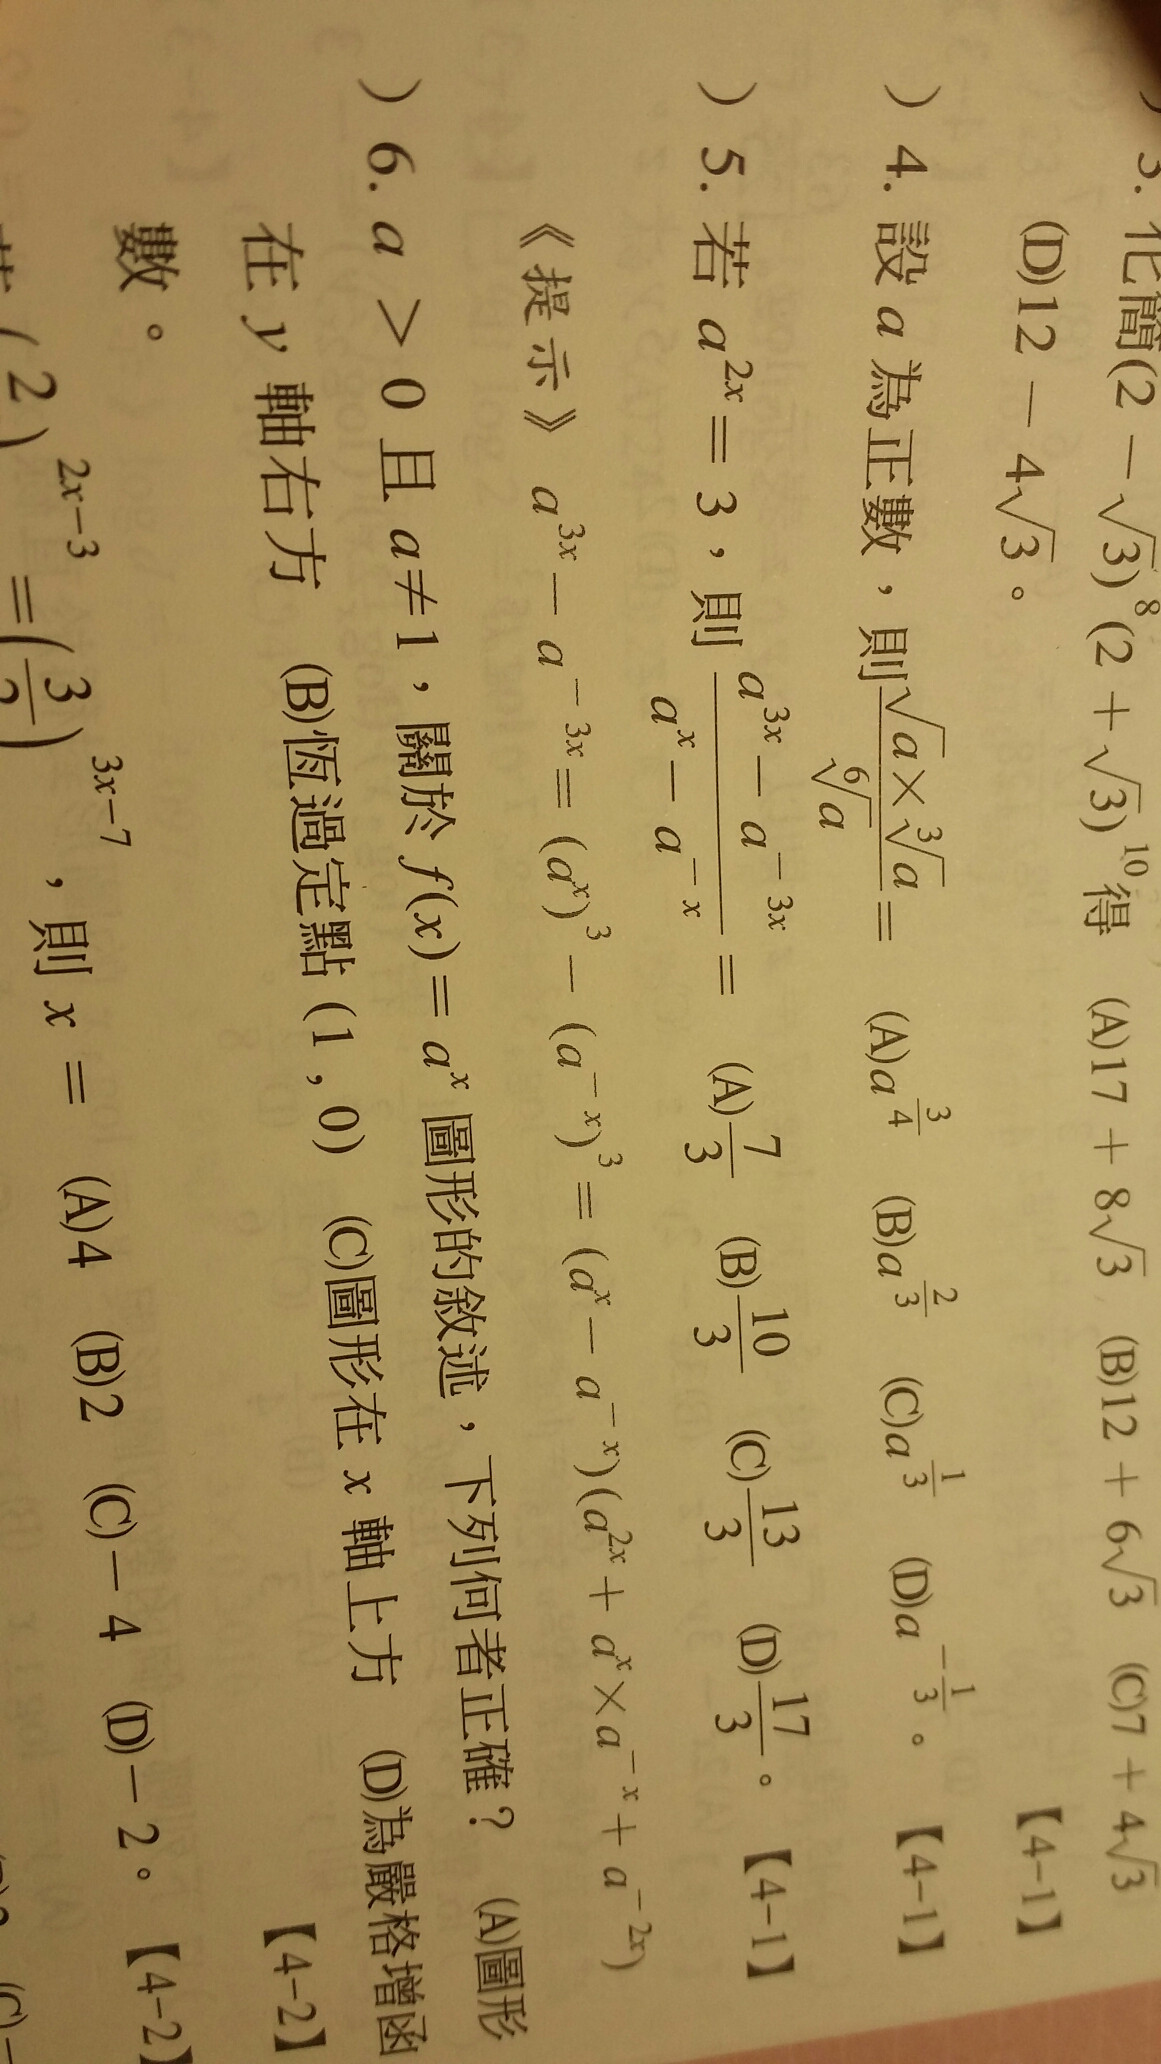 3. 化簡(2 − √3)⁸(2 + √3)¹⁰得 (A)17 + 8√3 (B)12 + 6√3 (C)7 + 4√3
(D)12 − 4√3。 【4−1】
) 4. 設 a 為正數,則 (√a × ∛a)/(⁶√a) = (A)a^(3/4) (B)a^(2/3) (C)a^(1/3) (D)a^(−1/3)。 【4−1】
) 5. 若 a^(2x) = 3,則 (a^(3x) − a^(−3x))/(a^x − a^(−x)) = (A)7/3 (B)10/3 (C)13/3 (D)17/3。 【4−1】
《提示》 a^(3x) − a^(−3x) = (a^x)³ − (a^(−x))³ = (a^x − a^(−x))(a^(2x) + a^x × a^(−x) + a^(−2x))
) 6. a > 0 且 a ≠ 1,關於 f(x) = a^x 圖形的敘述,下列何者正確? (A)圖形
在 y 軸右方 (B)恆過定點 (1,0) (C)圖形在 x 軸上方 (D)為嚴格增函
數。 【4−2】
(2 )^(2x−3) = (3 )^(3x−7),則 x = (A)4 (B)2 (C)−4 (D)−2。 【4−2】